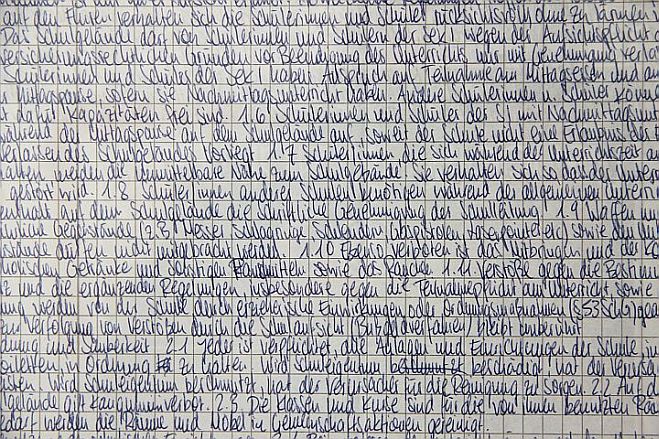 auf den Fluren verhalten sich die Schülerinnen und Schüler rücksichtsvoll ohne zu lärmen
Das Schulgelände darf von Schülerinnen und Schülern der Sek I wegen der Aufsichtspflicht
versicherungsrechtlichen Gründen vor Beendigung des Unterrichts nur mit Genehmigung verla
Schülerinnen und Schüler der Sek I haben Anspruch auf Teilnahme am Mittagessen und
Mittagspause, sofern sie Nachmittagsunterricht haben. Andere Schülerinnen u. Schüler könne
dafür Kapazitäten frei sind. 1.6 Schülerinnen und Schüler der SI mit Nachmittagsunt
während der Mittagspause auf dem Schulgelände auf, soweit der Schule nicht eine Erlaubnis der
Verlassen des Schulgeländes vorliegt 1.7 Schüler/innen, die sich während der Unterrichtszeit
halten, meiden die unmittelbare Nähe zum Schulgelände. Sie verhalten sich so das der Unterri
gestört wird. 1.8 Schüler/innen anderer Schulen benötigen während der allgemeinen Unterri
enthalt auf dem Schulgelände die schriftliche Genehmigung der Schulleitung. 1.9 Waffen
Gegenstände (z.B. Messer Schlagringe Schleudern Gaspistolen Laserpointer etc) sowie
stände dürfen nicht mitgebracht werden. 1.10 Ebenso verboten ist das Mitbringen und der Ko
holischen Getränke und sonstigen Rauschmitteln sowie das Rauchen 1.11 Verstöße gegen die Bestimm
z und die ergänzenden Regelungen insbesondere gegen die Teilnahmepflicht am Unterricht, sowie
ung werden von der Schule durch erzieherische Einwirkungen oder Ordnungsmaßnahmen (§53SchG)
zur Verfolgung von Verstößen durch die Schulaufsicht (Bußgeldverfahren) bleibt unberührt
dnung und Sauberkeit 2.1 Jeder ist verpflichtet, alle Anlagen und Einrichtungen der Schule, in
oiletten, in Ordnung zu halten. Wird Schuleigentum beschädigt hat der Verursa
osten. Wird Schuleigentum beschmutzt, hat der Verursacher für die Reinigung zu sorgen. 2.2 Auf d
lgelände gilt Kaugummiverbot. 2.3. Die Klassen und Kurse sind für die von ihnen benutzten Räu
Bedarf werden die Räume und Möbel in Gemeinschaftsaktionen gereinigt.